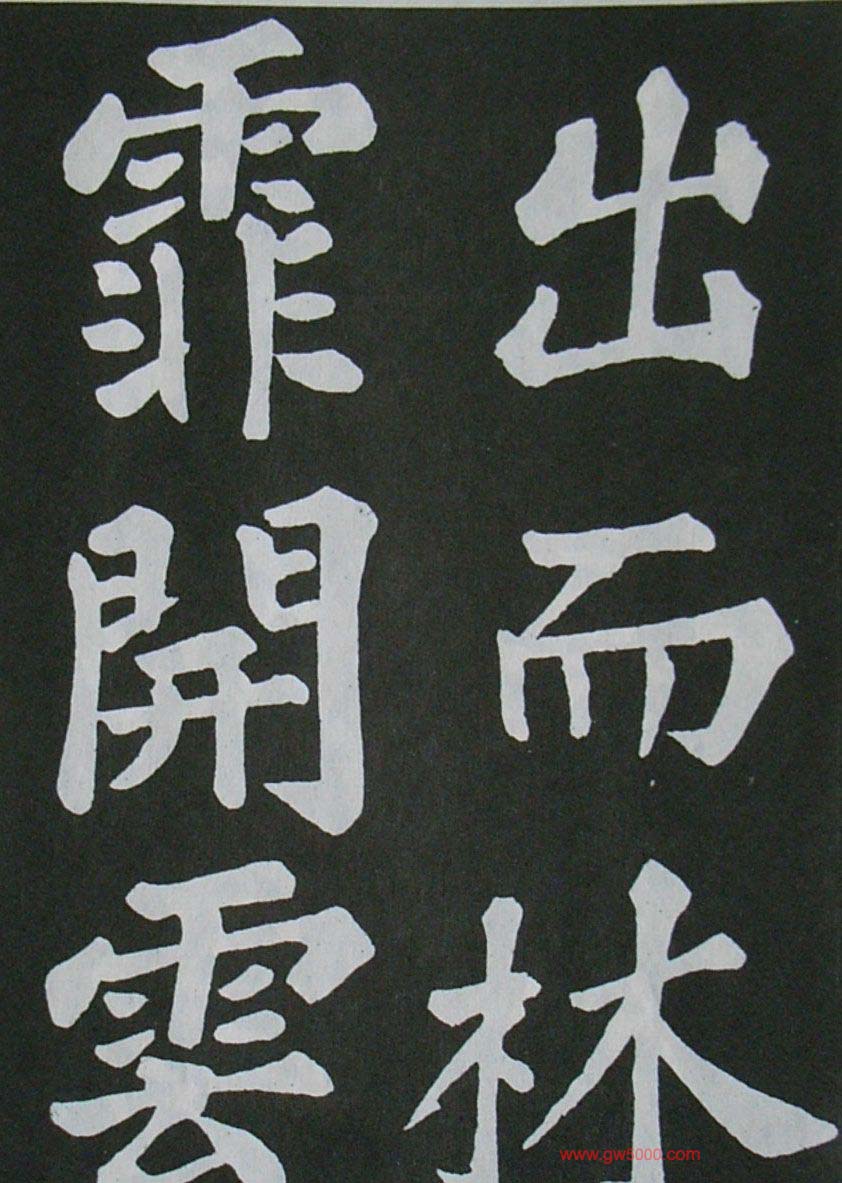 出而林
霏開雲
www.gw5000.com